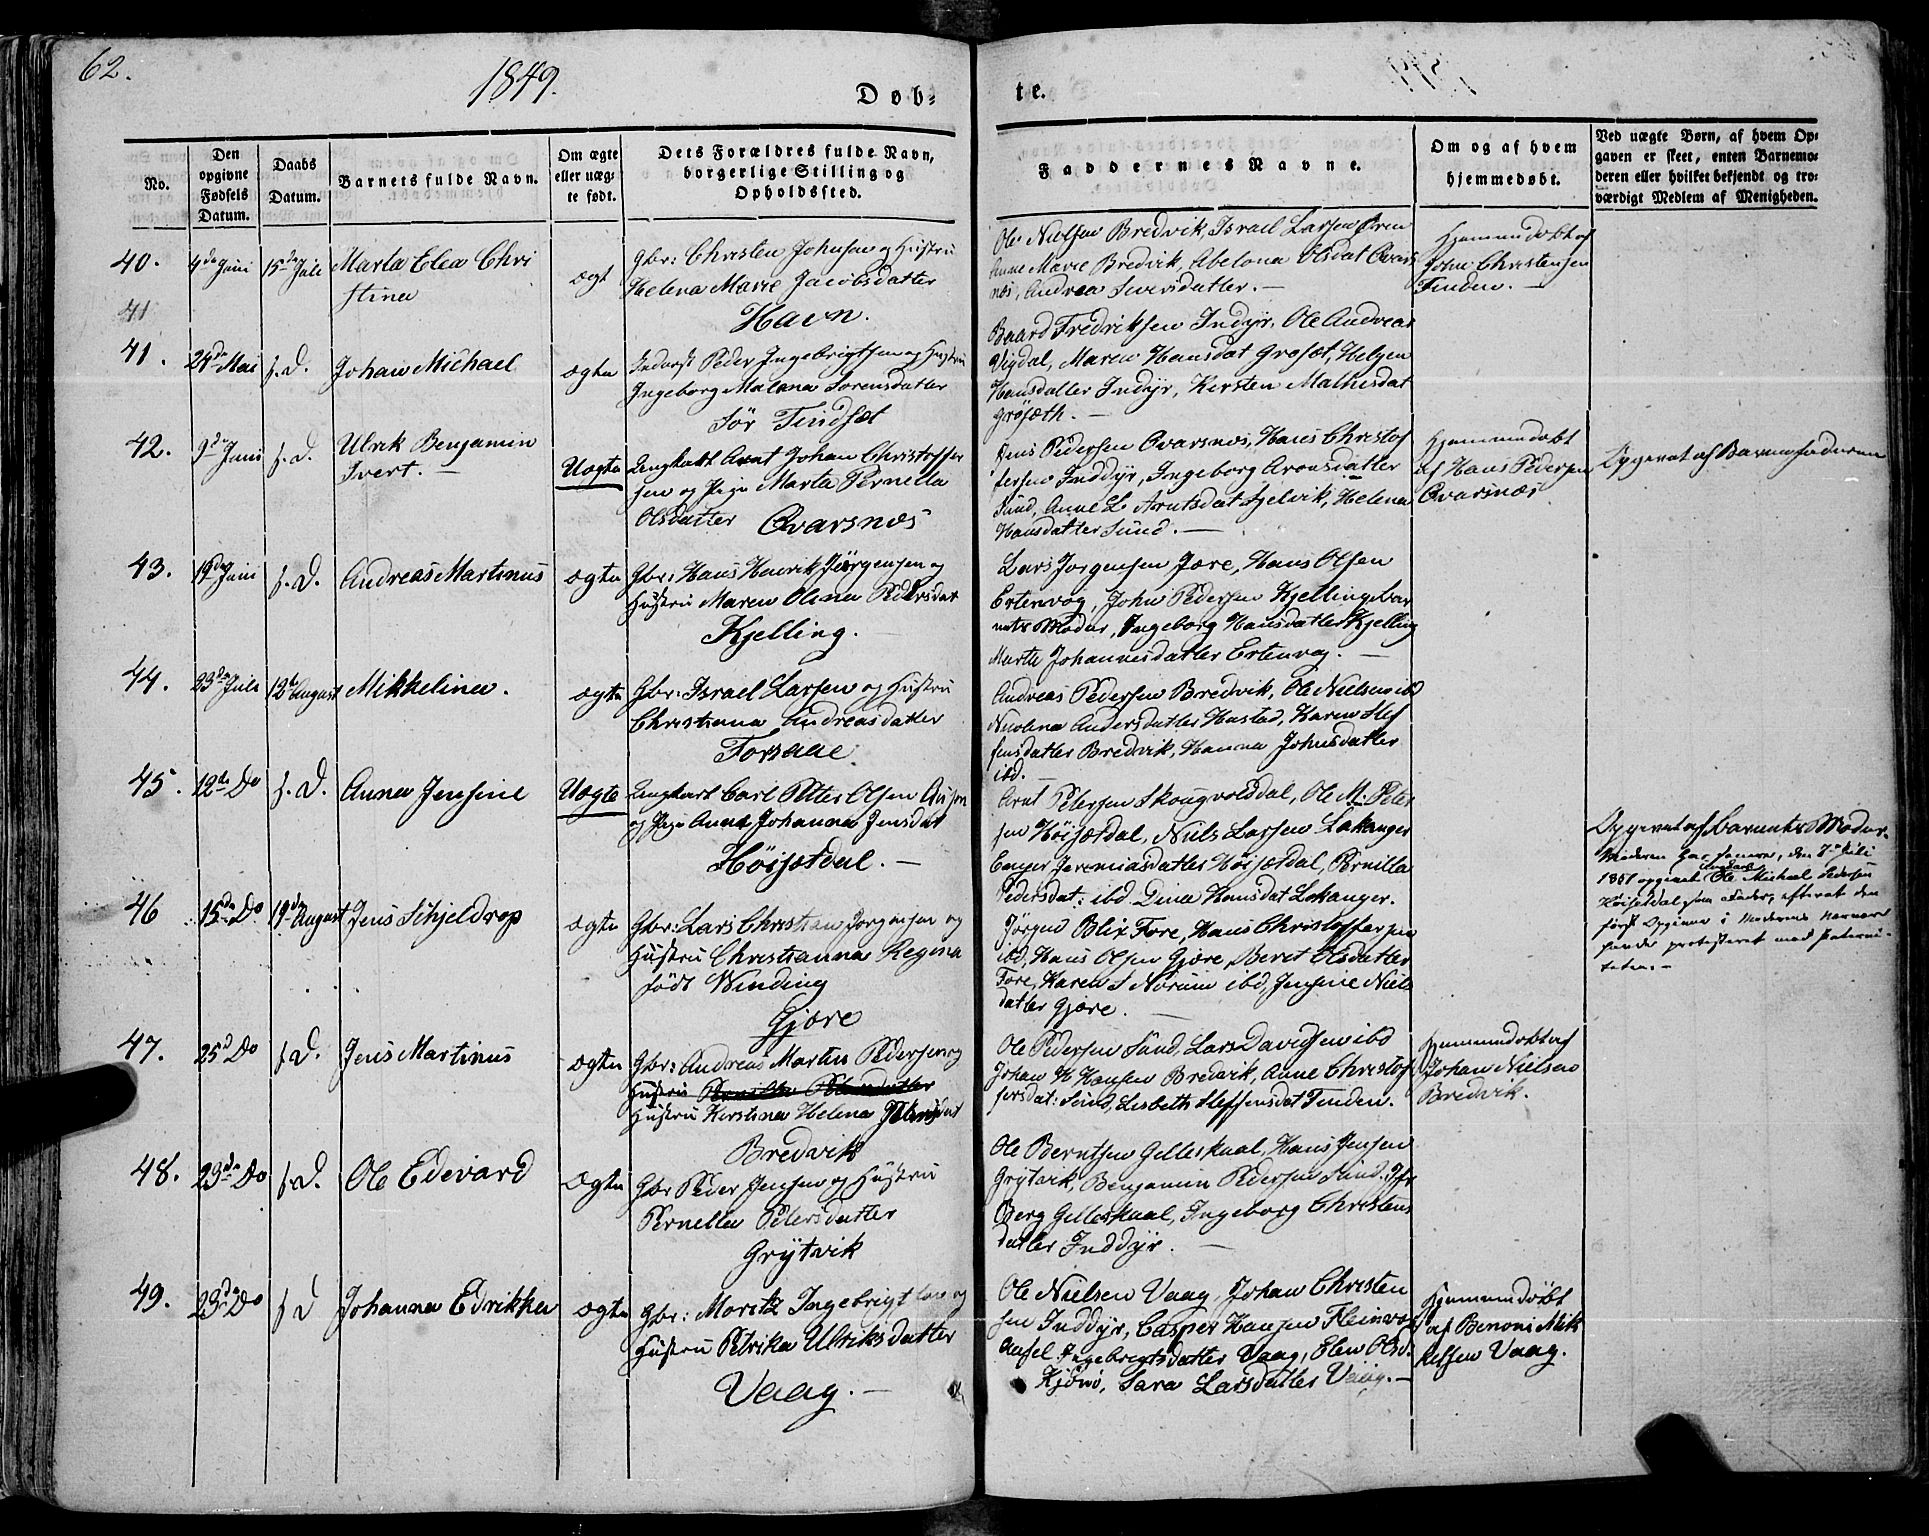 62.
1849.
Døb-
te.
No.
Den opgivne Fødsels Datum.
Daabs Datum.
Barnets fulde Navn.
Om ægte eller uægte født.
Dets Forældres fulde Navn, borgerlige Stilling og Opholdssted.
Faddernes Navne.
Om og af hvem hjemmedøbt.
Ved uægte Børn, af hvem Opgaven er skeet, enten Barnemoderen eller hvilket bekjendt og troværdigt Medlem af Menigheden.
40.
4de Juni
15de Juli
Marta Elea Chri
stina
ægt
Gbr: Christen Johnsen og Hustru
Helena Marie Jacobsdatter
Havn.
Ole Nielsen Bredvik, Israel Larsen
Anne Marie Bredvik, Abelona Olsdat Qvars
næs, Andrea Siversdatter.
Hjemmedøbt af
John Christensen
Finden.
41
41.
24de Mai
s. D.
Johan Michael
ægte
Inderst Peder Ingebrigtsen og Hustru
Ingeborg Malena Sorensdatter
Sör Findset
Baard Fredriksen Indyr, Ole Andreas
Vigdal, Maren Hansdat Grosæt, Helgen
Hansdatter Indyr, Kersten Mathisdat
Grösæth.
42.
9de Juni
s. D.
Ulrik Benjamin
Ivert.
Uægte
Ungkarl Arnt Johan Christoffer
sen og Pige Marta Pernella
Olsdatter Qvarsnæs
Jens Pedersen Qvarsnæs, Hans Christof
fersen Inddyr, Ingeborg Aronsdatter
Sund, Anne L. Arntsdat Selvik, Helena
Hansdatter Sund.
Hjemmedøbt
af Hans Pedersen
Qvarsnæs
Opgevet af Barnefaderen
43.
19de Juni
s. D.
Andreas Martinus
ægte
Gbr: Hans Henrik Jörgensen og
Hustru Maren Olina Pedersdat
Kjelling.
Lars Jorgensen Jære, Hans Olsen
Ertenvog, John Pedersen Kjelling, Bar
nets Moder, Ingeborg Hansdatter Kjelling
Marte Johannesdatter Ertenvog.
44.
23de Juli
12te August
Mikkelina.
ægte
Gbr: Israel Larsen og Hustru
Christianna Andreasdatter
Forsaae.
Andreas Pedersen Bredvik, Ole Nielsen ibd
Nicolina Andersdatter Hustad, Karen Stef
fensdatter Bredvik, Hanna Johnsdatter
ibd.
45.
12te Do
s. D.
Anna Jensine
Uægte
Ungkarl Carl Petter Olsen
og Pige Anna Johanna Jensdat
Höisætdal.
Arnt Petersen Skougvoldsdal, Ole M. Peter
sen Höisætdal, Niels Larsen Lekanger
Jeremiasdatter Höisætdal, Pernilla
Pedersdat: ibd Dina Hansdat Lekanger.
Opgevet af Barnets Moder.
Moderen har senere, den 7de Juli
1851 opgivet Ungkarl Ole Michael Pedersen
Höisetdal som Fader, efterat den
først Opgivne i Moderens Nærvæ
rende protesteret mod Paterni-
teten.
46
15de Do
19de August
Jens Schjeldrop
ægte
Gbr: Lars Christian Jorgensen og
Hustru Christianna Regina
född Winding
Gjære
Jörgen Blix Fore, Hans Christoffersen
ibd, Hans Olsen Gjære, Beret Olsdatter
Fore, Karen S Norum ibd, Jensine Niels
datter Gjære.
47.
25d Do
s. D.
Jens Martinus
ægte
Gbr: Andreas Martin Pedersen og
Hustru
Hustru Kerstina Helena
Bredvik
Ole Pedersen Sund, Lars Davidsen ibd
Johan H Hansen Bredvik, Anne Christof
fersdat: Sund, Lisbeth Steffensdat Finden.
Hjemmedøbt af
Johan Nielsen
Bredvik.
48.
23de Do
s. D.
Ole Edevard
ægte
Gbr Peder Jensen og Hustru
Pernella Petersdatter
Grytvik
Ole Berntsen Gilleskaal, Hans Jensen
Grytvik, Benjamin Pedersen Sund,
Berg Gilleskaal, Ingeborg Christens
datter Inddyr.
49.
23de Do
s D
Johanna Edrikka
ægte
Gbr: Moritz Ingebrigtsen og
Hustru Petrika Ulriksdatter
Vaag.
Ole Nielsen Vaag, Johan Christen
sen Inddyr, Casper Hansen Fleinvær
Ansel Ingebrigtsdatter Vaag, Elen Olsd.
Kjönö, Sara Larsdatter Vaag.
Hjemmedöbt
af Benoni Mik
kelsen Vaag.